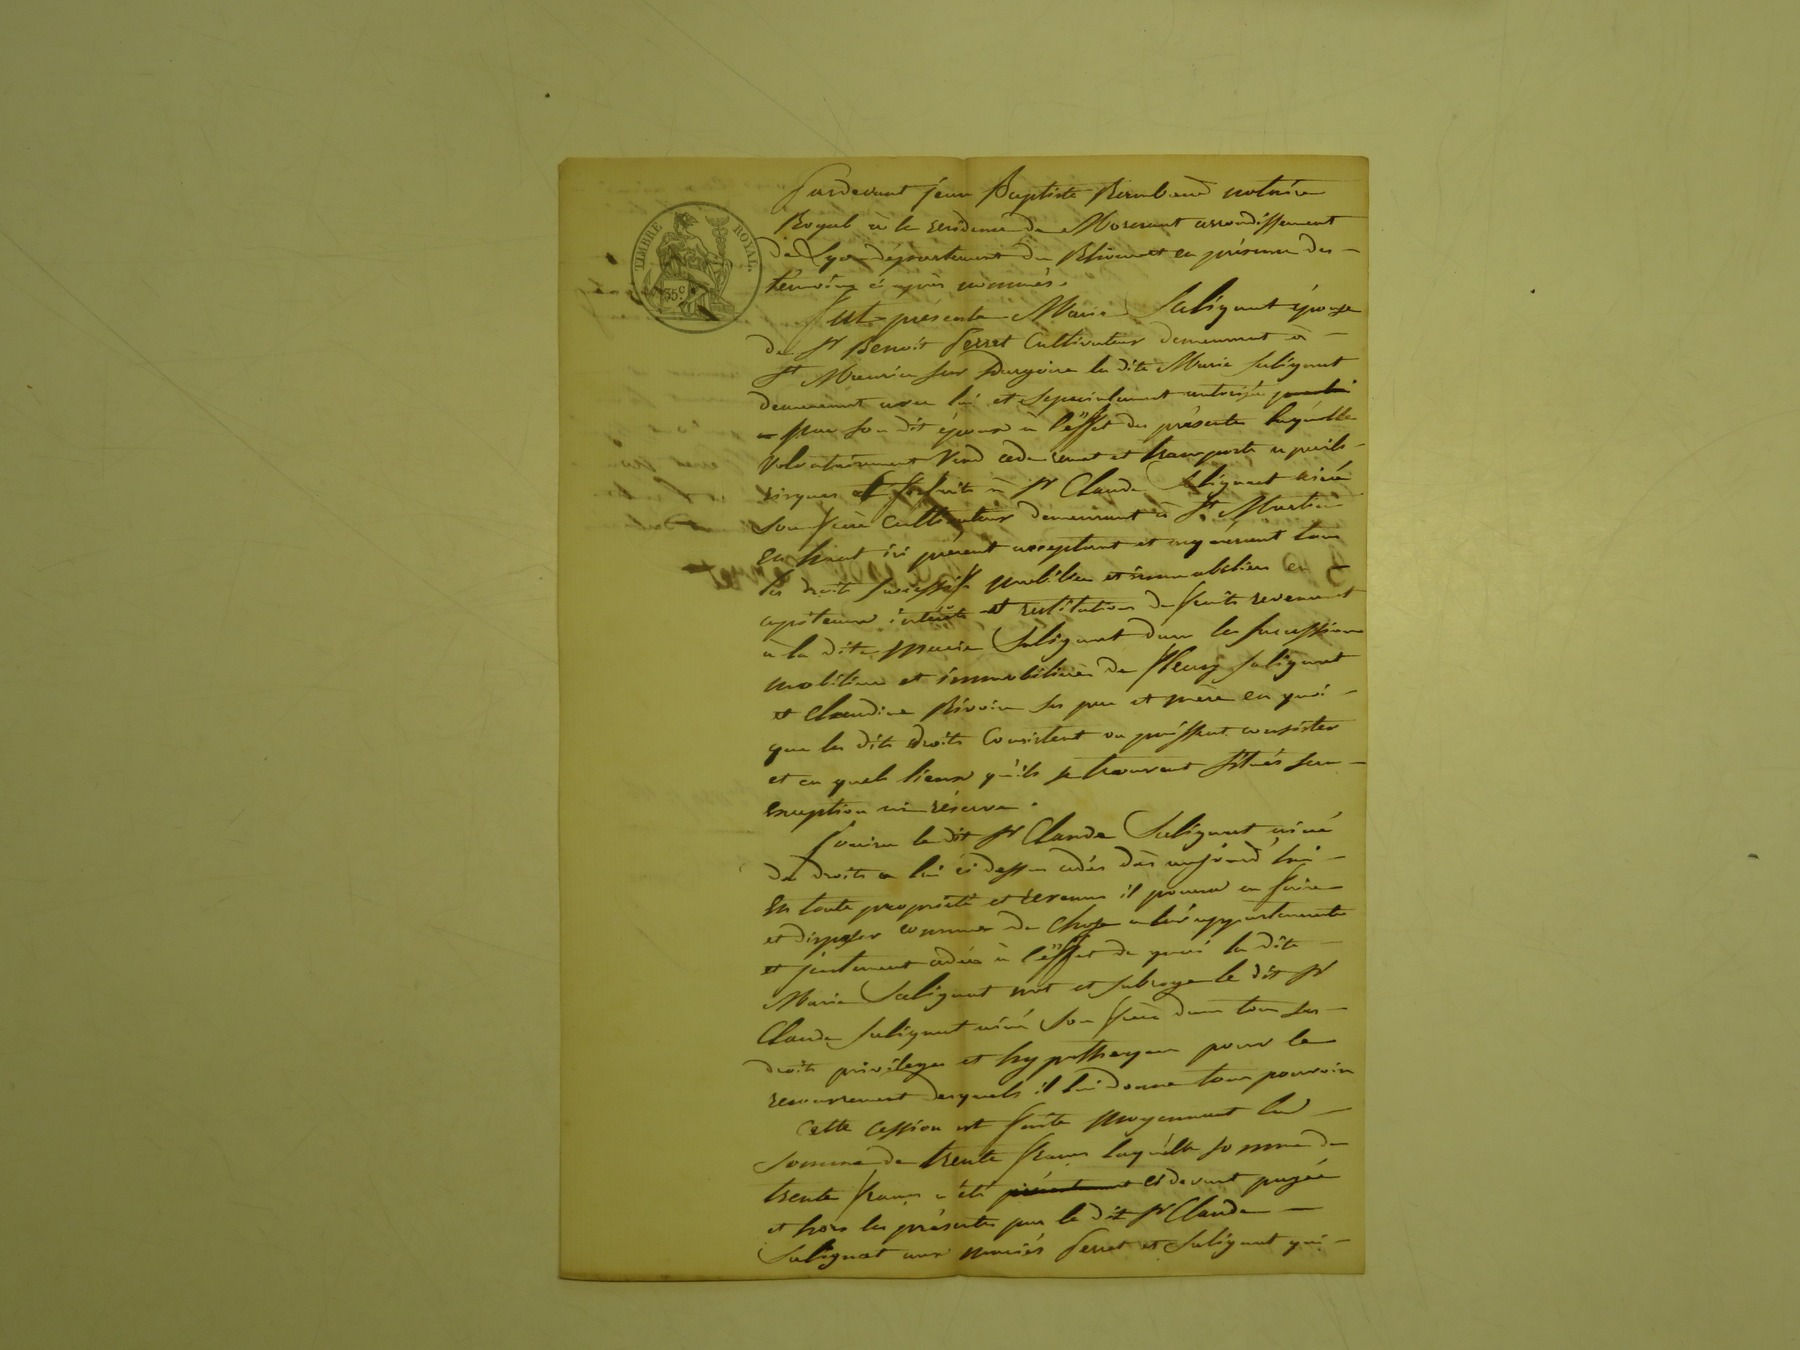 TIMBRE ROYAL.
35c
Pardevant jean Baptiste notaire
Royal à la résidence de Mornant arrondissement
de Lyon département du Rhône et en présence des
témoins ci après nommés.
fut présente Marie Salignat épouse
de Sr Benoit Perret Cultivateur demeurant à
St Maurice sur Dargoire la dite Marie Salignat
demeurant avec lui et specialement autorisée
par son dit époux à l'éffet des présentes laquelle
volontairement vend cede remet et transporte a perils
risques et fortuits à Sr Claude Salignat ainé
son frère cultivateur demeurant à St Martin
en haut ici présent acceptant et acquerant tous
les droits successifs mobiliers et immobiliers en
capitaux intérêts et restitution de fruits revenant
à la dite Marie Salignat dans les successions
mobilières et immobilières de Fleury Salignat
et Claudine Rivoire ses pere et mère en quoi
que les dits droits Consistent ou puissent consister
et en quels lieux qu'ils se trouvent situés sans
exception ni réserve.
Jouira le dit Sr Claude Salignat ainé
des droits a lui ci dessus cédés dès aujourd'hui
en toute propriété et revenu il pourra en faire
et disposer comme de chose a lui appartenante
et justement cédée à l'éffet de quoi la dite
Marie Salignat met et subroge le dit Sr
Claude Salignat ainé son frère dans tous ses
droits privileges et hypotheques pour le
recouvrement desquels il lui donne tous pouvoirs
Cette Cession est faite moyennant la
somme de trente francs laquelle somme de
trente francs a été ci devant payée
et hors les présentes par le dit Sr Claude
Salignat aux mariés Perret et Salignat qui